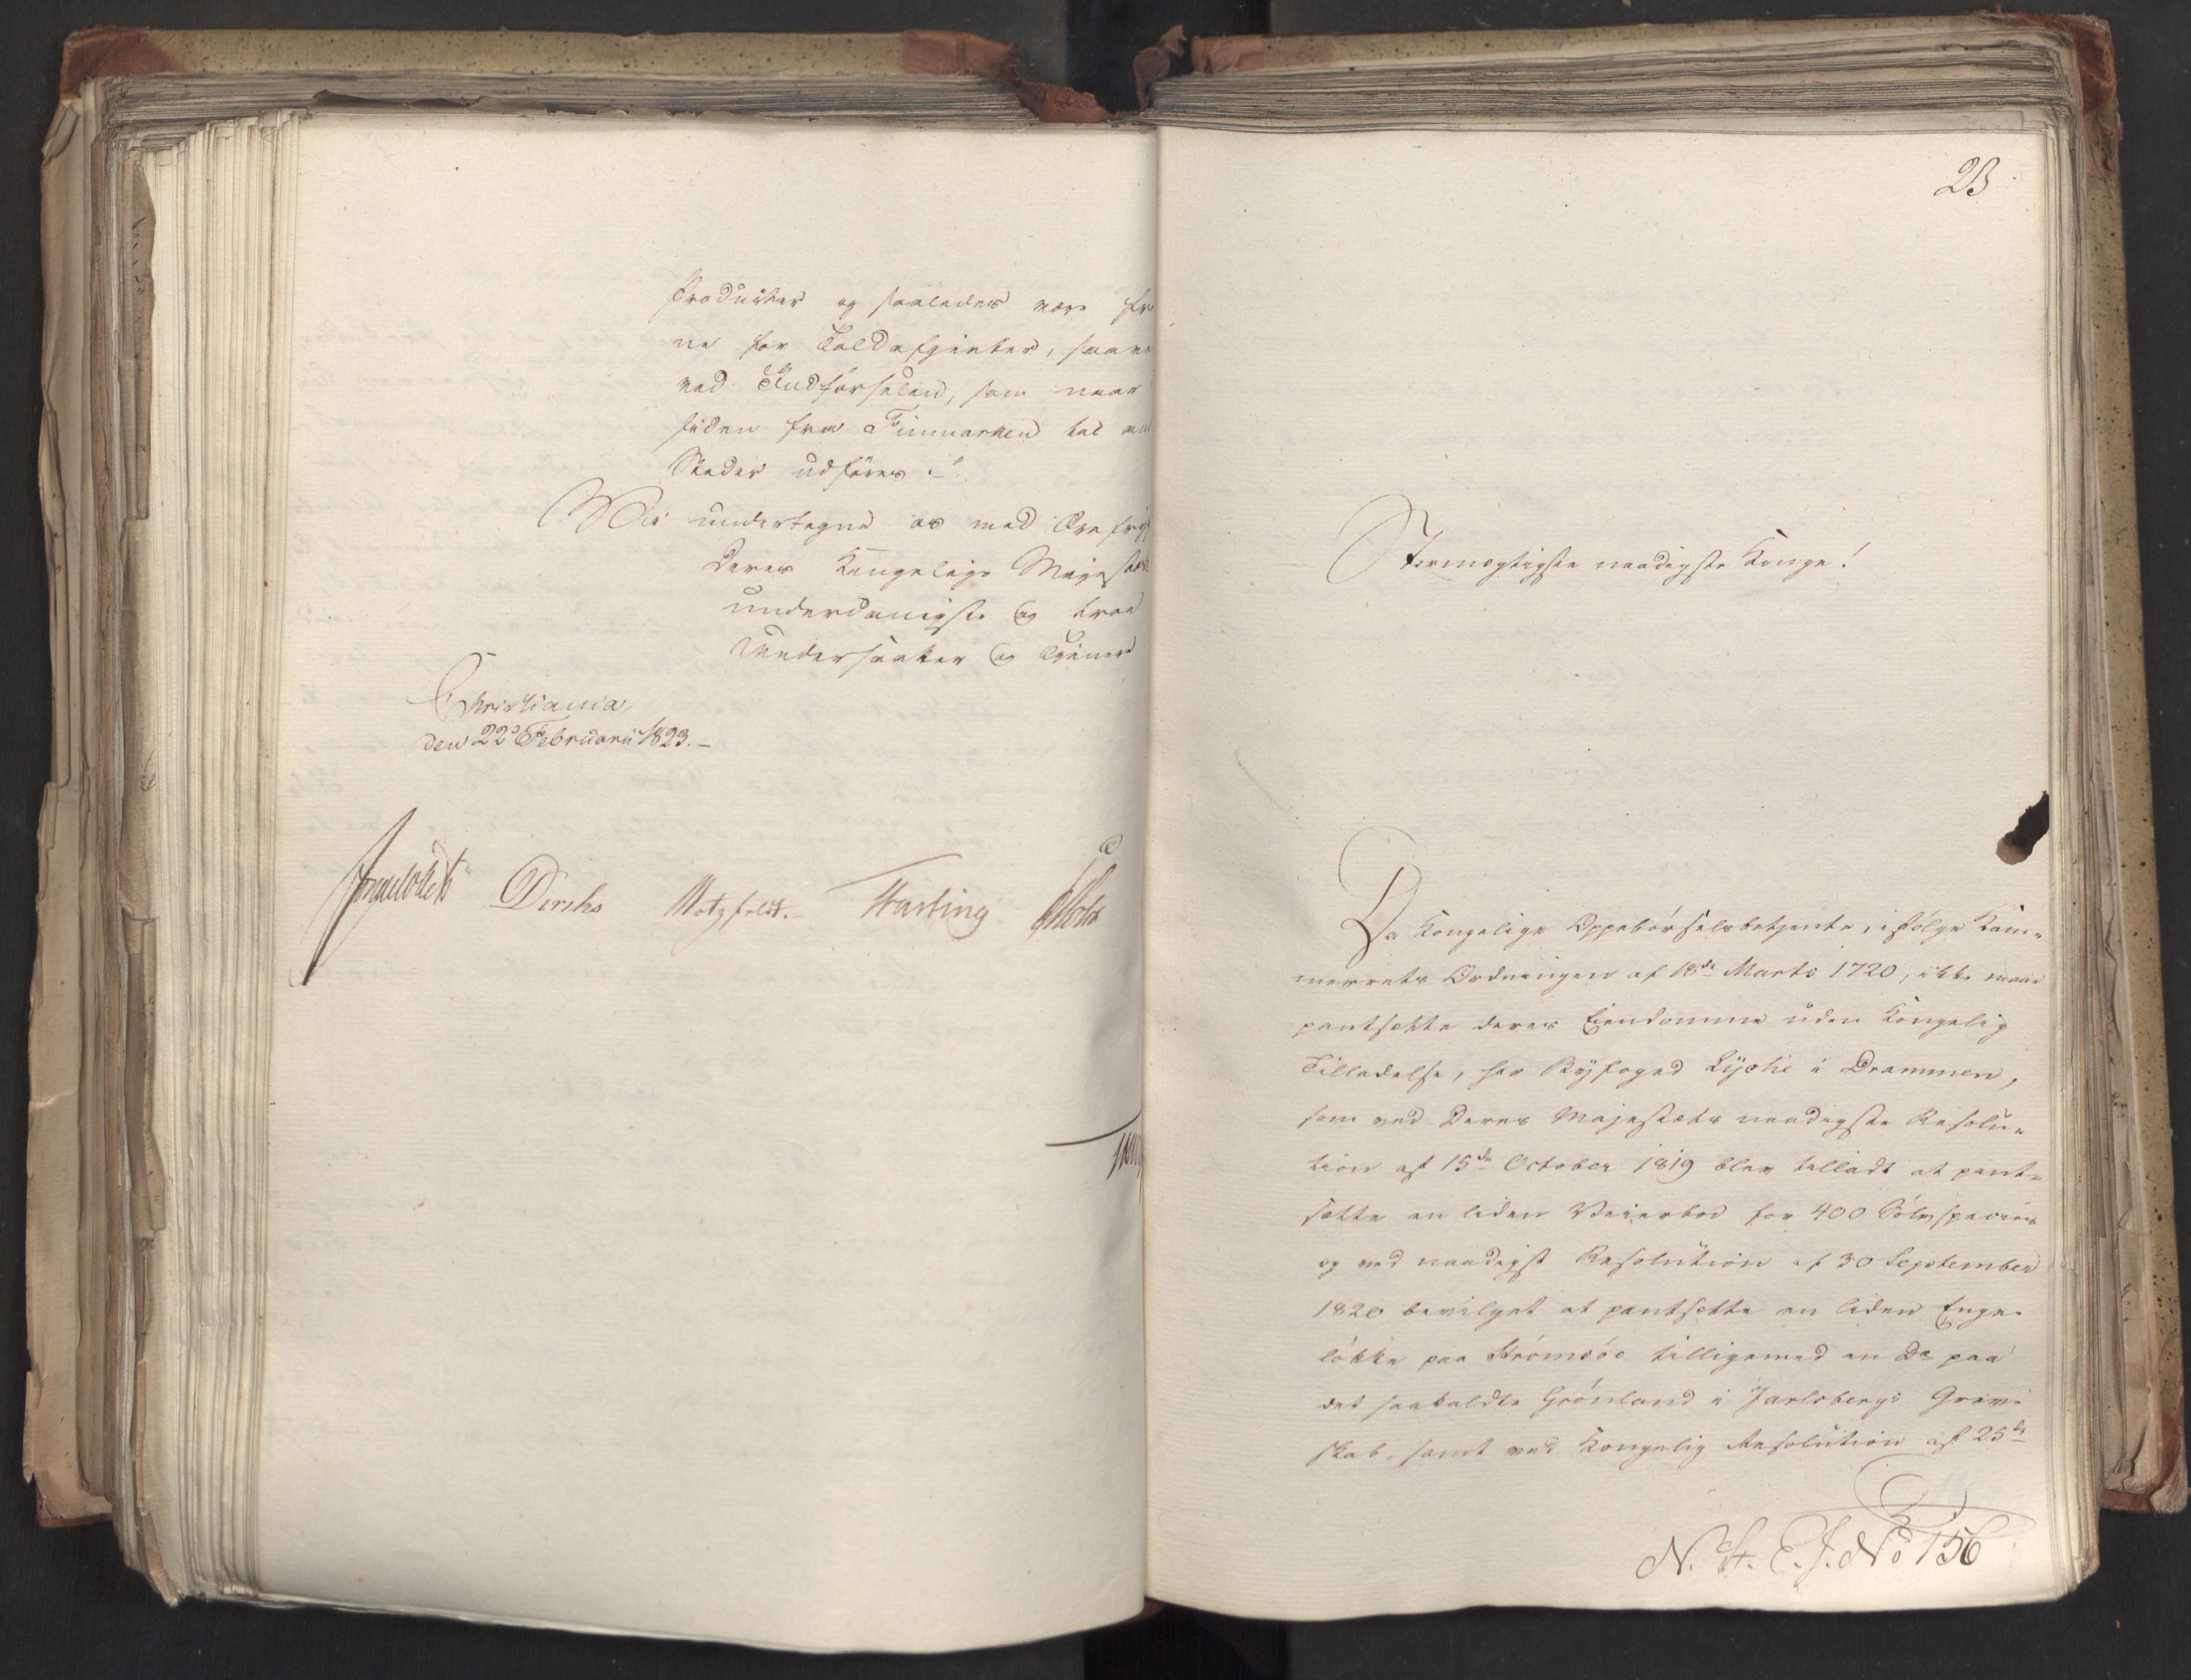 Producter og saaledes være fri
ne for Toldafgivter, saavel
ved Indförselen, som naar
siden fra Finmarken til an
Steder udföres."
Vi undertegne os med Ærefrygt
Deres Kongelige Majestæts
underdanigste og troe
Undersaatter og Tjenere
Christiania,
den 22d Februarii 1823.
Diriks Motzfeldt. Fasting Holst
23
Stormægtigste naadigste Konge!
Da Kongelige Oppebörselsbetjente, ifölge Kam-
merrets Ordningen af 18de Marts 1720, ikke maae
pantsætte deres Eiendomme uden Kongelig
Tilladelse, har Byfoged Lyche i Drammen,
som ved Deres Majestæts naadigste Resolu-
tion af 15de October 1819 blev tilladt at pant-
sætte en liden Veierbod for 400 Sölvspecier
og ved naadigst Resolution af 30 September
1820 bevilget at pantsætte en liden Enge-
lökke paa Strömsöe tilligemed en Do paa
det saakaldte Grönland i Jarlsbergs Grev-
skab, samt ved Kongelig Resolution af 25de
N. St. E. J. No 156